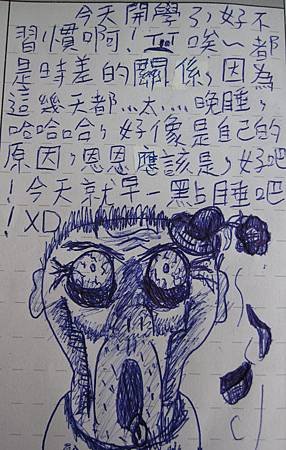 今天開學了，好不
習慣啊！ㄒㄒ唉～都
是時差的關係，因為
這幾天都…太…晚睡，
哈哈哈，好像是自己的
原因，恩恩應該是，好吧
！今天就早一點睡吧
！XD